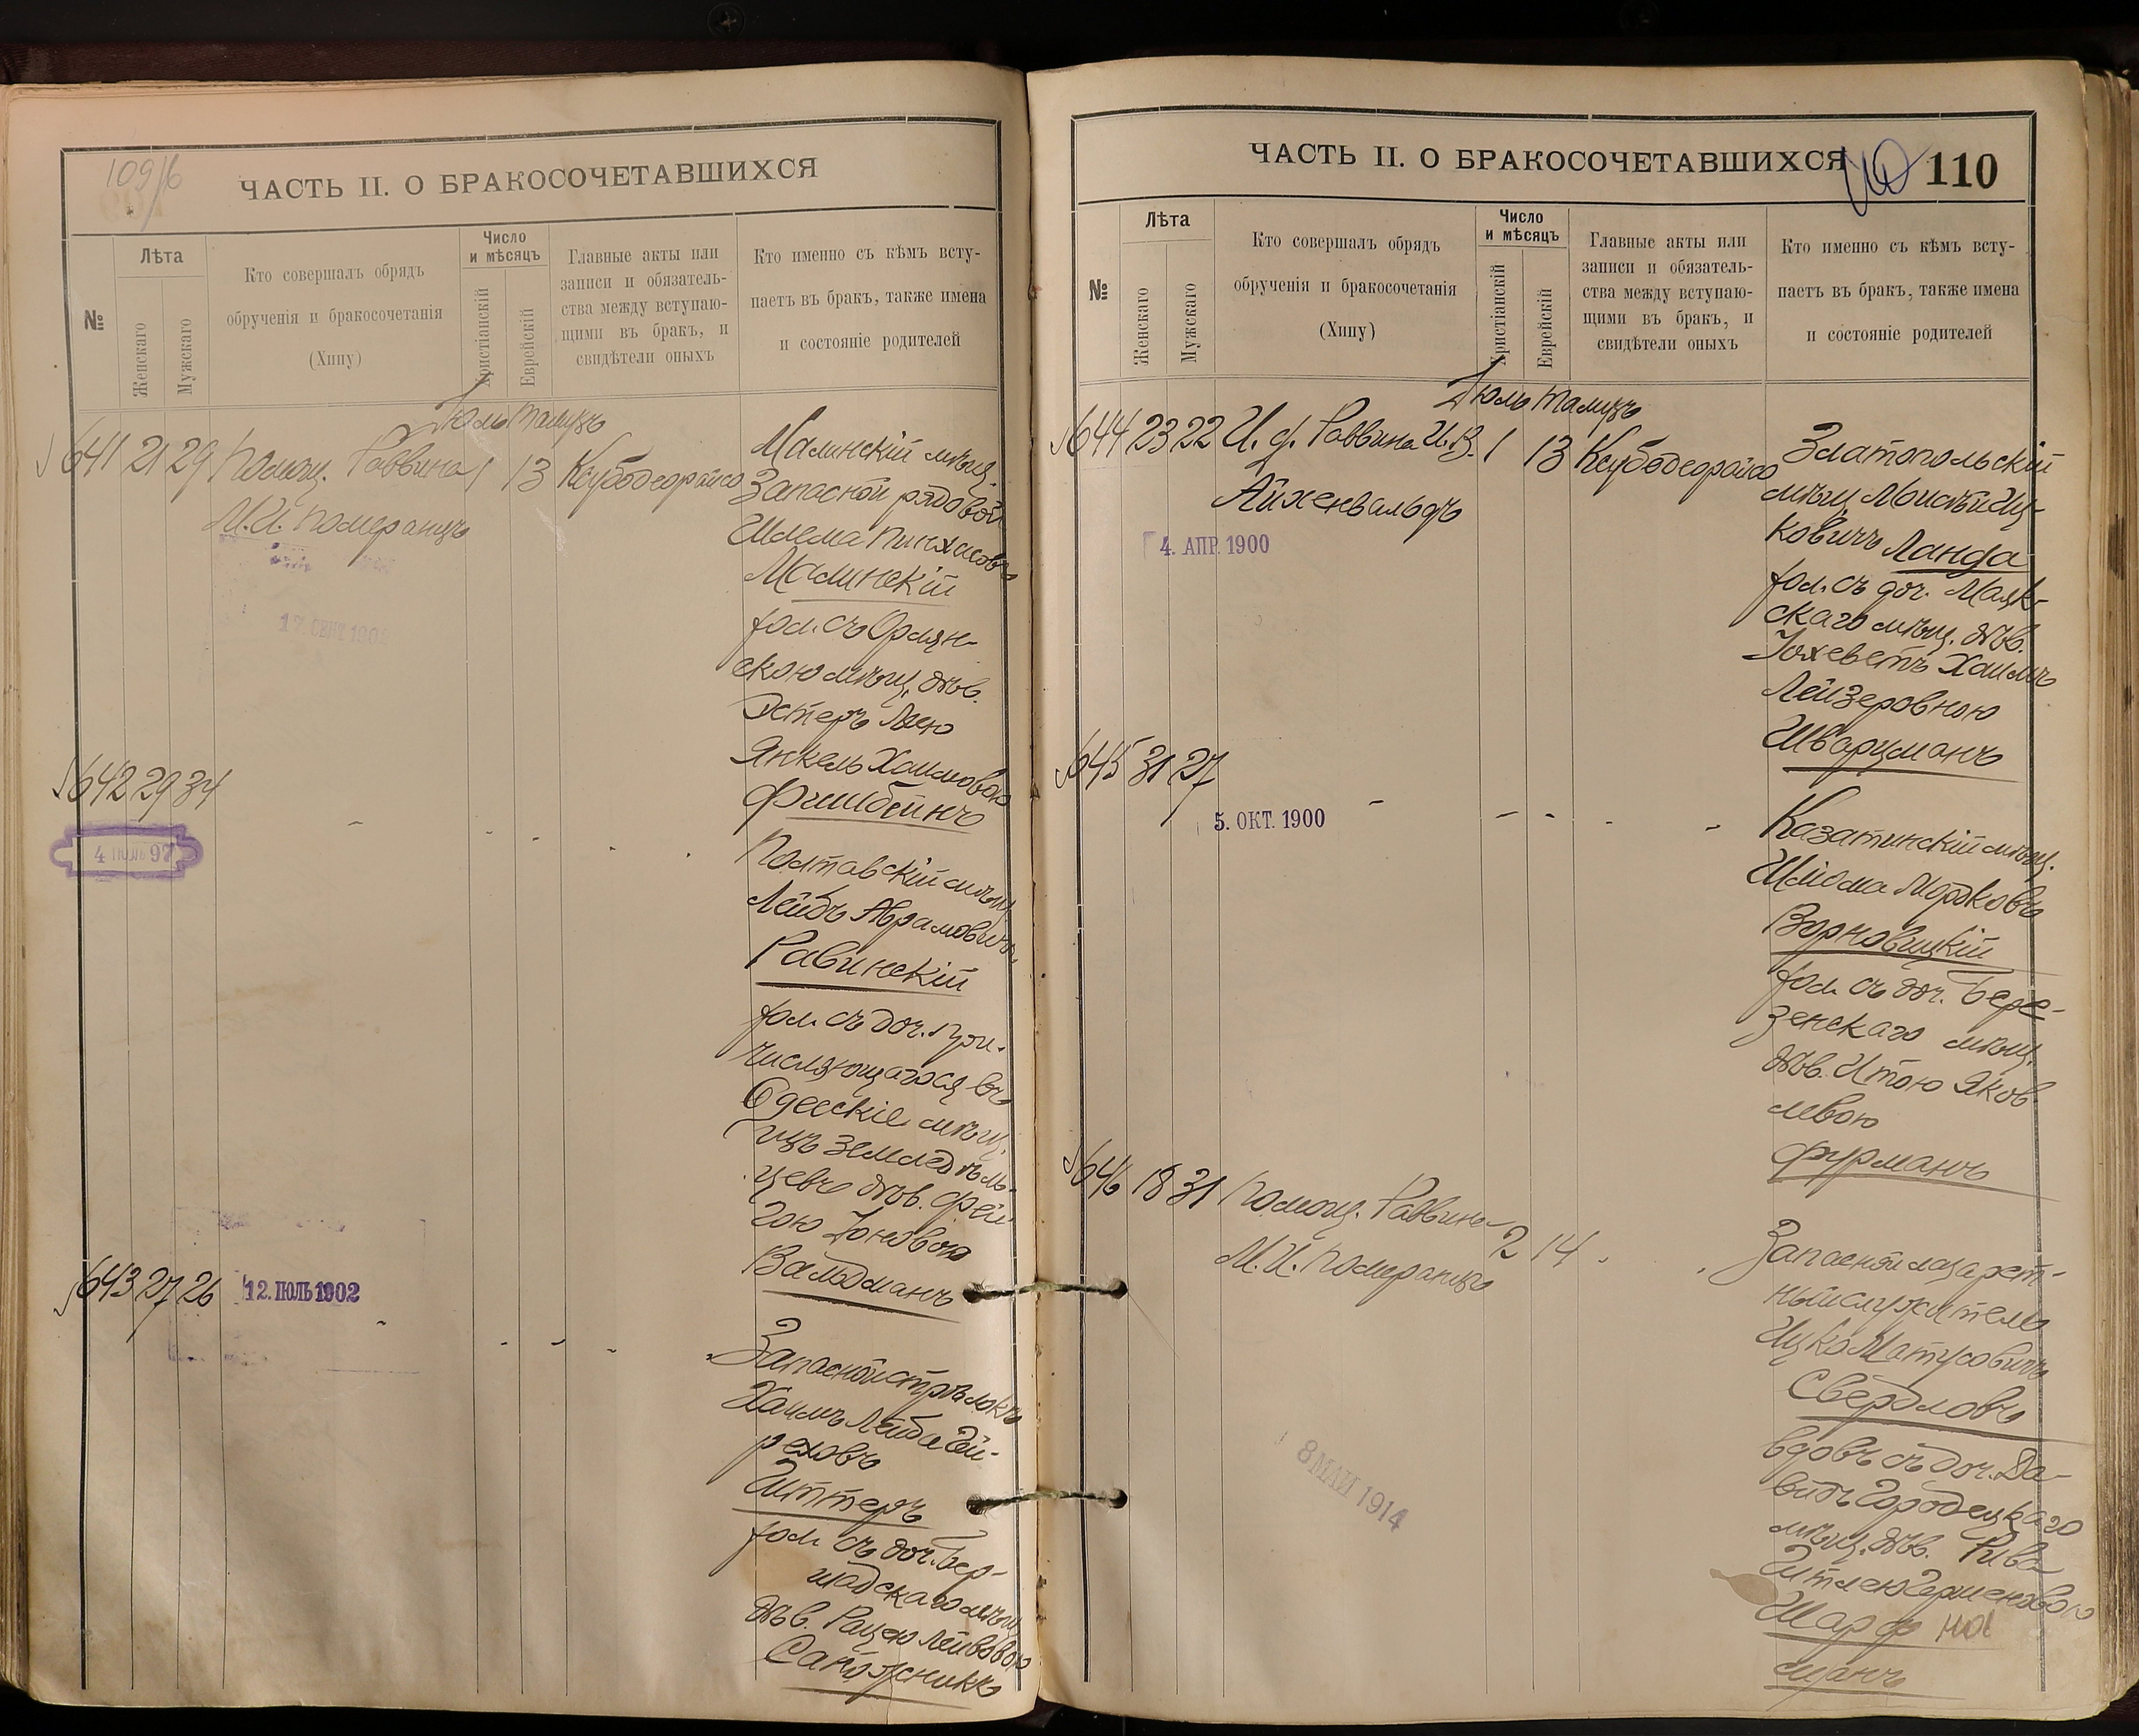 109/б
ЧАСТЬ II. О БРАКОСОЧЕТАВШИХСЯ
№
Лѣта
Женскаго
Мужскаго
Кто совершалъ обрядъ
обрученія и бракосочетанія
(Хипу)
Число
и мѣсяцъ
Христіанскій
Еврейскій
Главные акты или
записи и обязатель-
ства между вступаю-
щими въ бракъ, и
свидѣтели оныхъ
Кто именно съ кѣмъ всту-
паетъ въ бракъ, также имена
и состояніе родителей
Іюль Тамузъ
641 21 29 Помощ. Раввина 1 13 Ксубодеорайсо
М.И. Померанцъ
17. СЕНТ 1902
Малинскій мѣщ.
Запасной рядовой
Шлема Пинхасовъ
Малинскій
хол. съ Орлян-
скою мѣщ. дѣв.
Эстеръ Леею
Янкель Хаимовою
Фишбейнъ
642 29 34
4 ІЮЛЬ 97
Полтавскій мѣщ.
Лейбъ Аврамовичъ
Равинскій
хол. съ доч. при-
числяющагося въ
Одесскіе мѣщ.
изъ земледѣль-
цевъ дѣв. Фей-
гою Іоновою
Вальдманъ
643 27 26
12. ІЮЛЬ 1902
Запасной стрѣлокъ
Хаимъ Лейба Эй-
реховъ
Иттеръ
хол. съ доч. Бер-
шадскаго мѣщ.
дѣв. Рацею Лейбовою
Сапожникъ
ЧАСТЬ II. О БРАКОСОЧЕТАВШИХСЯ
110
110
№
Лѣта
Женскаго
Мужскаго
Кто совершалъ обрядъ
обрученія и бракосочетанія
(Хипу)
Число
и мѣсяцъ
Христіанскій
Еврейскій
Главные акты или
записи и обязатель-
ства между вступаю-
щими въ бракъ, и
свидѣтели оныхъ
Кто именно съ кѣмъ всту-
паетъ въ бракъ, также имена
и состояніе родителей
Іюль Тамузъ
644 23 22 И. д. Раввина И.В. 1 13 Ксубодеорайсо
Айхенвальдъ
4. АПР. 1900
Златопольскій
мѣщ. Моисей Иц-
ковичъ Ланда
хол. съ доч. Маяк-
скаго мѣщ. дѣв.
Іохеветъ Хаимъ
Лейзеровною
Шварцманъ
645 31 27
5. ОКТ. 1900
Казатинскій мѣщ.
Шлюма Мордковъ
Ворновицкій
хол. съ доч. Бере-
зенскаго мѣщ.
дѣв. Итою Яков-
левою
Фурманъ
646 18 31 Помощ. Раввина 2 14
М.И. Померанцъ
8 МАЙ 1914
Запасной лазарет-
ный служитель
Ицко Матусовичъ
Свердловъ
вдовъ съ доч. Да-
видъ Городецкаго
мѣщ. дѣв. Рива
Итлею Герменовою
Шарф
манъ